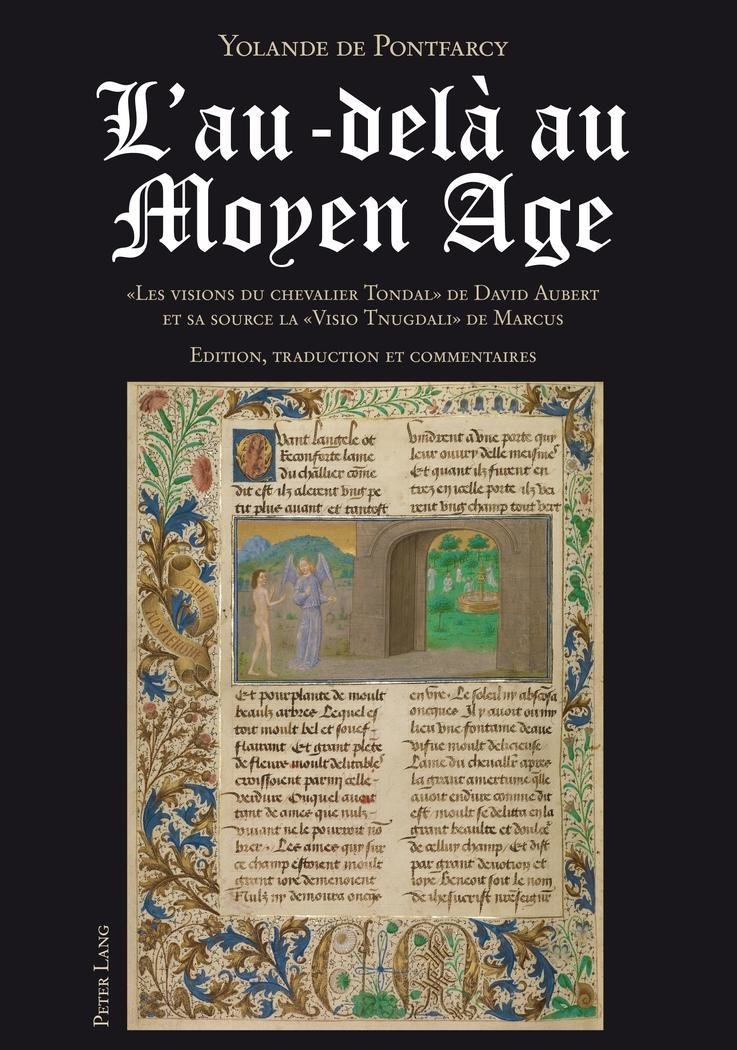 YOLANDE DE PONTFARCY
L'au-delà au
Moyen Age
«LES VISIONS DU CHEVALIER TONDAL» DE DAVID AUBERT
ET SA SOURCE LA «VISIO TNUGDALI» DE MARCUS
EDITION, TRADUCTION ET COMMENTAIRES
Quant langele ot
Reconforte lame
du chlier cõme
dit est ilz alerent vng pe
tit plus auant et tantost
vindrent a vne porte quy
leur ouury delle meisme
Et quant ilz furent en
trez en icelle porte ilz vei
rent vng champ tout vert
Et pour plante de moult
beaulz arbres Lequel es
toit moult bel et souef
flairant Et grant plete
de fleurs moult delitables
croissoient parmi celle
verdure Ouquel auoit
tant de ames que nulz
viuant ne le pourroit nõ
brer. Les ames quy sur
ce champ estoient moult
grant ioye demenoient
Nulz ny demoura oncqs
en vre. Le soleil ny absconsa
oncques Il y auoit ou my
lieu vne fontaine deaue
viſue moult delicieuse
Lame du cheualier apres
la grant amertume qlle
auoit endure comme dit
est moult se delitta en la
grant beaulte et doulcr
de celluy champ Et dist
par grant deuotion et
ioye Benoit soit le nom
de ihesucrist nreseignr
PETER LANG